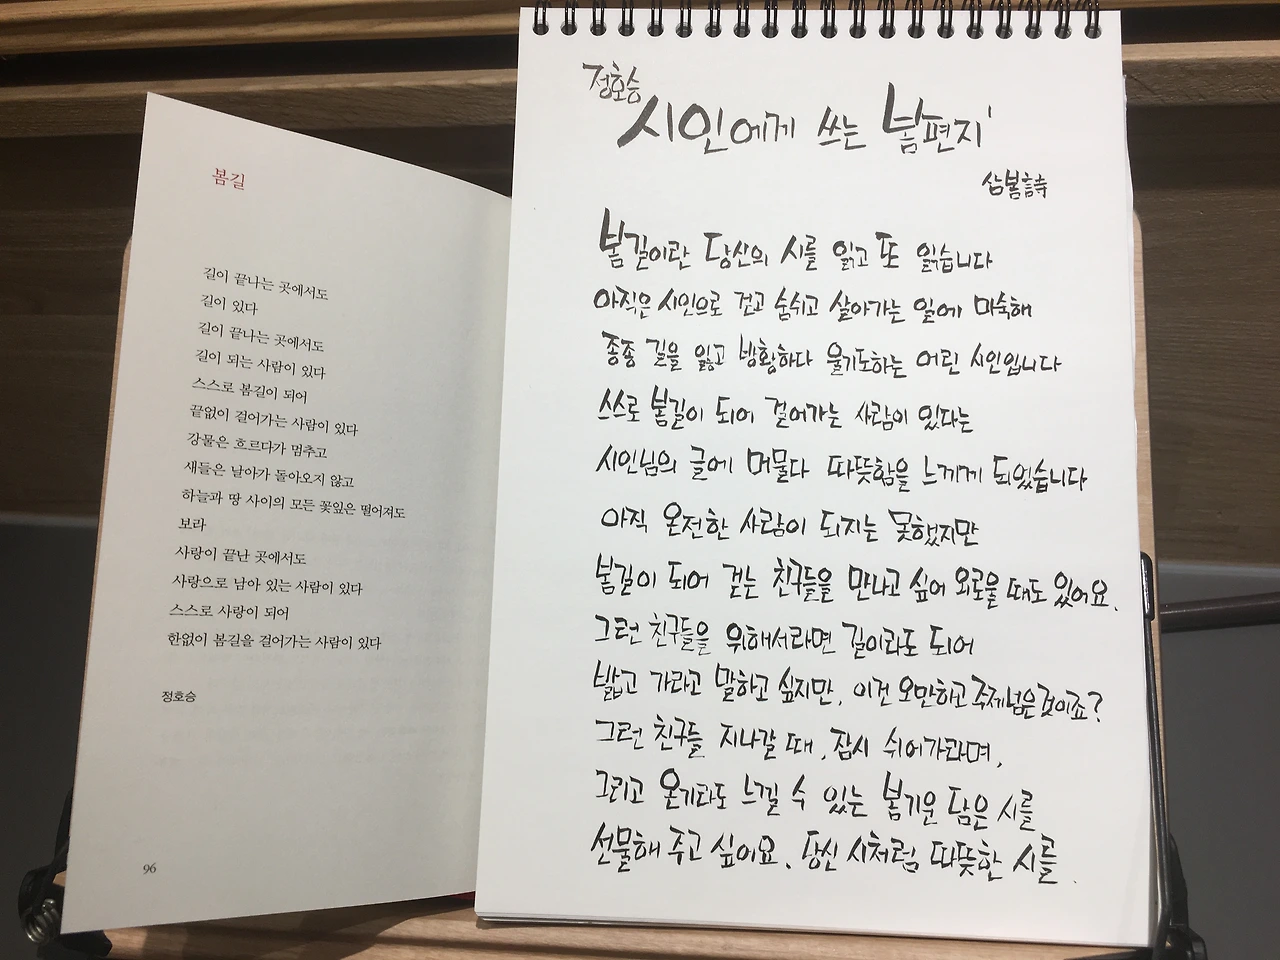 봄길
길이 끝나는 곳에서도
길이 있다
길이 끝나는 곳에서도
길이 되는 사람이 있다
스스로 봄길이 되어
끝없이 걸어가는 사람이 있다
강물은 흐르다가 멈추고
새들은 날아가 돌아오지 않고
하늘과 땅 사이의 모든 꽃잎은 떨어져도
보라
사랑이 끝난 곳에서도
사랑으로 남아 있는 사람이 있다
스스로 사랑이 되어
한없이 봄길을 걸어가는 사람이 있다
정호승
96
정호승
시인에게 쓰는 봄편지'
삼봄詩
봄길이란 당신의 시를 읽고 또 읽습니다
아직은 시인으로 걷고 숨쉬고 살아가는 일에 미숙해
종종 길을 잃고 방황하다 울기도하는 어린 시인입니다
스스로 봄길이 되어 걸어가는 사람이 있다는
시인님의 글에 머물다 따뜻함을 느끼게 되었습니다
아직 온전한 사람이 되지는 못했지만
봄길이 되어 걷는 친구들을 만나고 싶어 외로울 때도 있어요.
그런 친구들을 위해서라면 길이라도 되어
밟고 가라고 말하고 싶지만, 이건 오만하고 주제넘은것이죠?
그런 친구들 지나갈 때, 잠시 쉬어가라며,
그리고 온기라도 느낄 수 있는 봄기운 담은 시를
선물해 주고 싶어요. 당신 시처럼 따뜻한 시를.